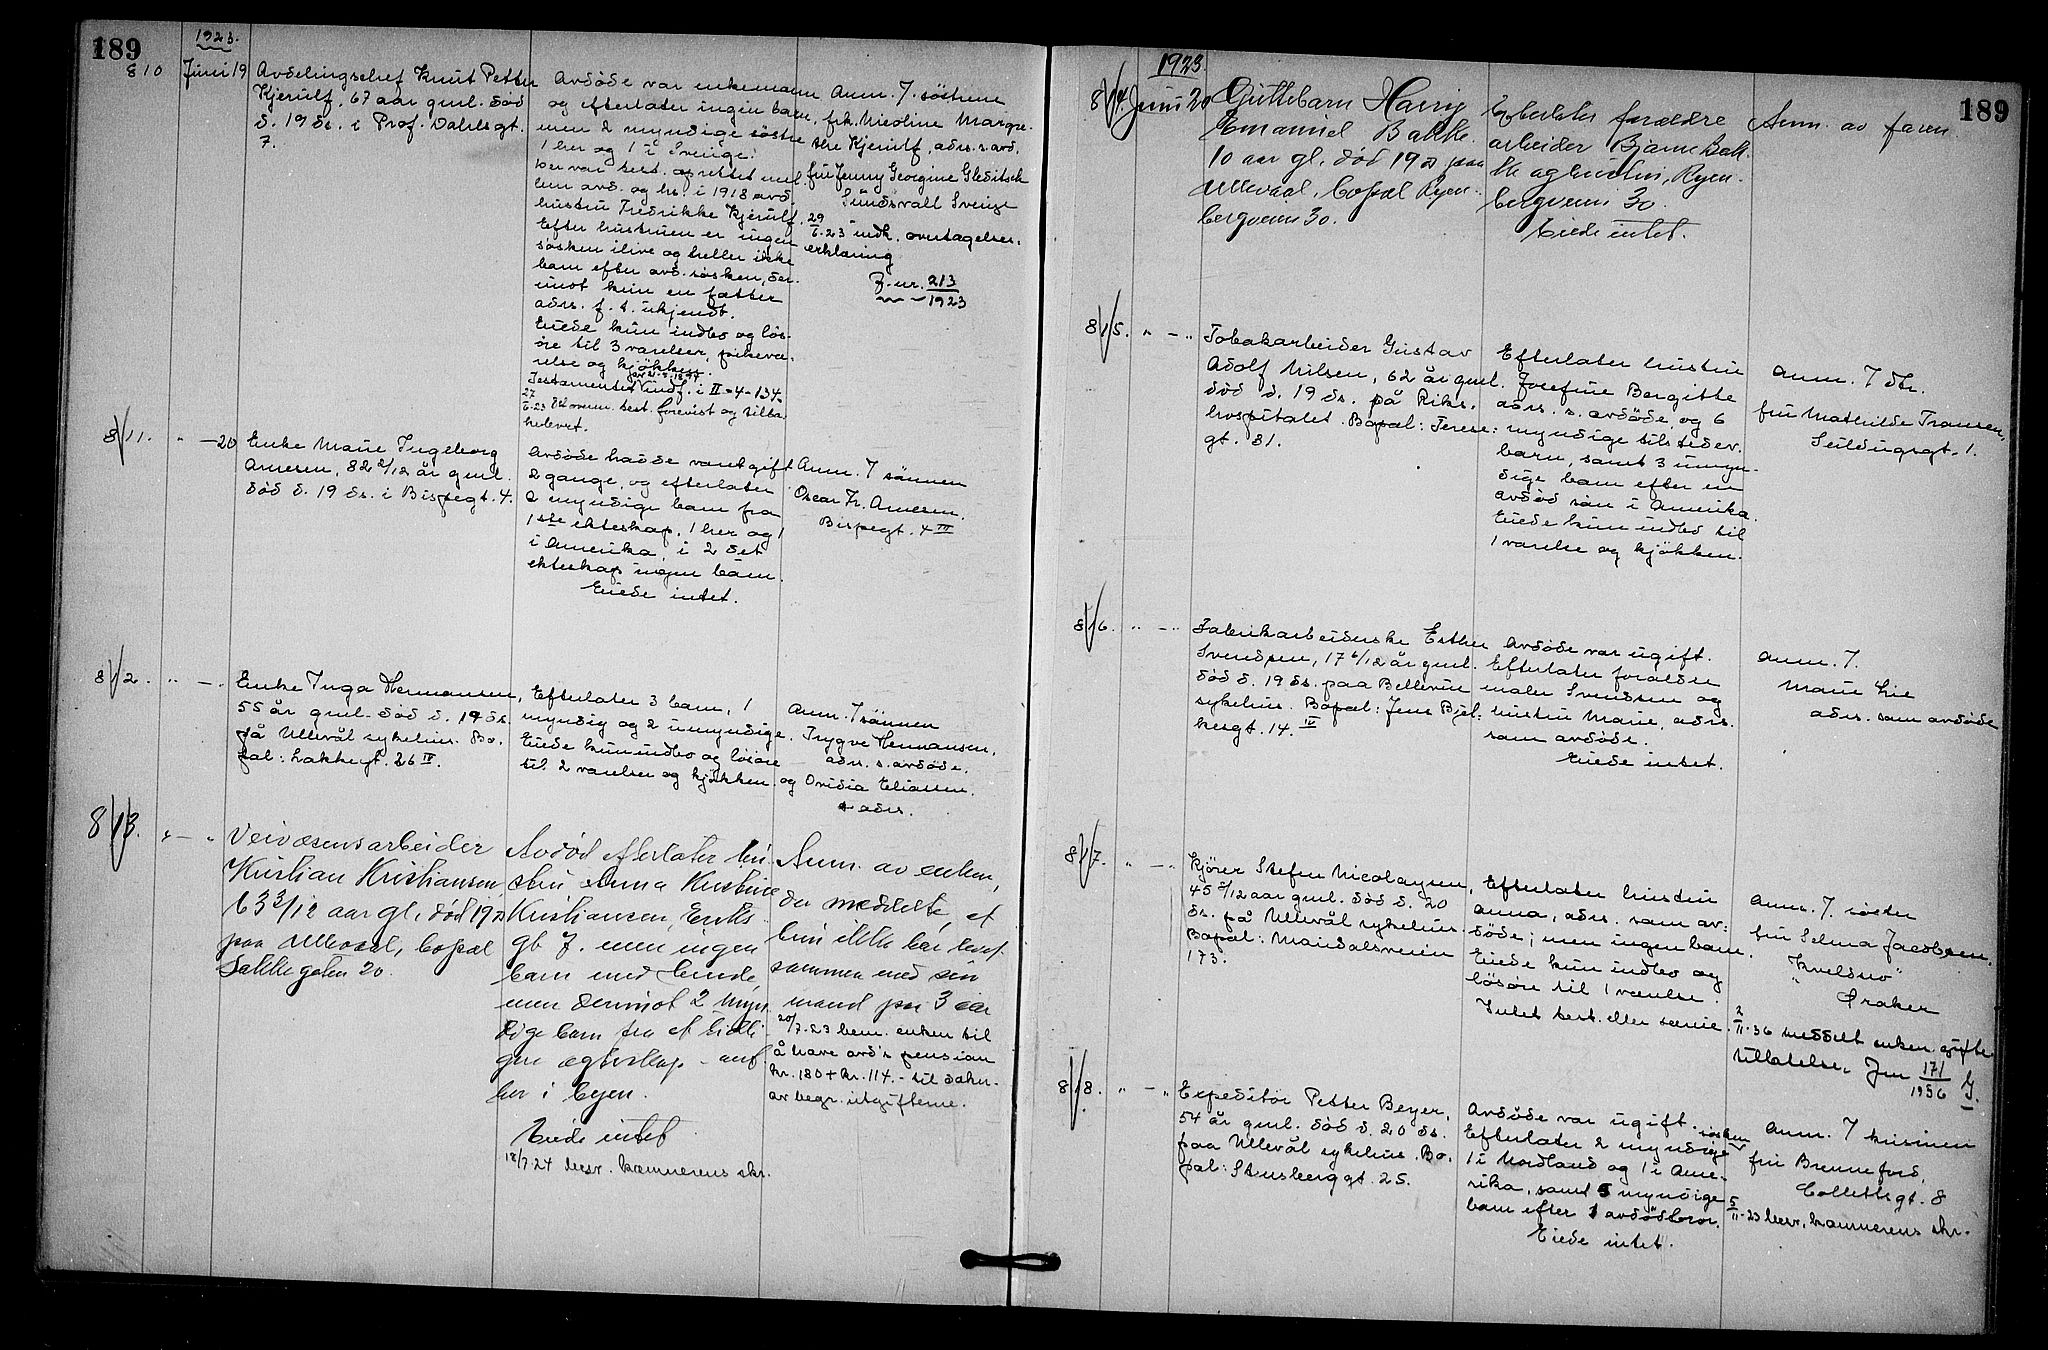 189
1923.
810
Juni 19
Avdelingschef Knut Petter
Kjerulf, 67 aar gml. død
d. 19 ds. i Prof. Dahls gt.
7.
Avdøde var enkemann
og efterlater ingen barn,
men 2 myndige søstre
1 her og 1 i Sverige.
Der var test. oprettet mel.
lem avd. og hs. i 1918 avd.
hustru Fredrikke Kjerulf.
Efter hustruen er ingen
søsken ilive og heller ikke
barn efter avd. søsken, der-
imot kun en fætter
adrs. f. t. ukjendt.
Eiede kun indbo og løs-
øre til 3 værelser, pikevæ-
relse og kjøkken.
Testamentet indf. i II-4-134.
27/6-23 Edovenn. test. forevist og tilba-
kelevert.
Anm. 7. søstrene
frk. Nicoline Margre-
the Kjerulf, adrs. s. avd.
fru Jenny Georgine Gleditsch
Sundsvall Sverige
29/6.23 indk. overtagelses-
erklæring
J. nr. 213/1923
811.
" — 20
Enke Marie Ingeborg
Arnesen, 82 2/12 år gml.
død d. 19 ds. i Bispegt. 4.
Avdøde hadde vært gift
2 gange, og efterlater
2 myndige barn fra
1ste ekteskap, 1 her og 1
i Amerika, i 2det
ekteskap ingen barn.
Eiede intet.
Anm. 7 sønnen
Oscar Fr. Arnesen.
Bispegt. 4 III
812.
" — "
Enke Inga Hermansen,
55 år gml. død d. 19 ds.
på Ullevål sykehus. Bo-
pæl: Lakkegt. 26 IV.
Efterlater 3 barn, 1
myndig og 2 umyndige.
Eiede kun indbo og løsøre
til 2 værelser og kjøkken.
Anm. 7 sønnen
Trygve Hermansen,
adrs. s. avdøde.
og Ovidia Eliassen.
adrs.
813.
" — "
Veivæsensarbeider
Kristian Kristiansen,
63 3/12 aar gl, død 19 ds
paa Ullevaal, bopæl
Lakkegaten 20.
Avdød efterlater hu-
stru Anna Kristine
Kristiansen, Enks
gt 7. men ingen
barn med hende,
men derimot 2 myn-
dige barn fra et tidli-
gere ægteskap - alle
her i byen.
Eiede intet
18/7.24 besv. kæmnerens skr.
Anm. av enken,
der meddelte, at
hun ikke har levet
sammen med sin
mand paa 3 aar
20/7.23 bem. enken til
å have avd's pension
kr. 180 + kr. 114.- til dækn.
av begr. utgifterne.
189
1923.
814.
Juni 20
Guttebarn Harry
Emanuel Bakke
10 aar gl. død 19 ds paa
Ullevaal, bopæl Ryen-
bergveien 30.
Efterlater forældre
arbeider Bjarne Bak-
ke og hustru, Ryen-
bergveien 30.
Eiede intet.
Anm. av faren
815.
" — "
Tobakarbeider Gustav
Adolf Nilsen, 62 år gml.
død d. 19 ds. på Riks-
hospitalet. Bopæl: Terese-
gt. 31.
Efterlater hustru
Josefine Bergitte
adrs. s. avdøde, og 6
myndige tilstedev.
barn, samt 3 umyn-
dige barn efter en
avdød søn i Amerika.
Eiede kun indbo til
1 værelse og kjøkken.
Anm. 7 dtr.
fru Mathilde Fransen,
Seildugsgt. 1.
816.
" — "
Fabrikarbeiderske Esther
Svendsen, 17 6/12 år gml.
død d. 19 ds. paa Bellevue
sykehus. Bopæl: Jens Bjel-
kesgt. 14. IV
Avdøde var ugift.
Efterlater forældre
maler Svendsen og
hustru Marie, adrs.
som avdøde.
Eiede intet.
Anm. 7.
Marie Lie
adrs. som avdøde
817.
" — "
Kjører Stefen Nicolaysen,
45 2/12 aar gml. død d. 20
ds. på Ullevål sykehus.
Bopæl: Maridalsveien
173.
Efterlater hustru
Anna, adrs. som av-
døde; men ingen barn.
Eiede kun indbo og
løsøre til 1 værelse.
Intet test. eller særeie.
Anm. 7. søster
fru Selma Jacobsen,
"Kveldsro"
Øraker
2/11-36 meddelt enken gifte-
tillatelse. Jnr 171/1936 G.
818.
" — "
Expeditør Petter Beyer,
54 år gml. død d. 20 ds.
paa Ullevål sykehus. Bo-
pæl: Stensberggt. 25.
Avdøde var ugift.
Efterlater 2 myndige søsken
1 i Nordland og 1 i Ame-
rika, samt 5 myndige
barn efter 1 avdød bror.
Eiede intet.
Anm. 7 kusinen
fru Brenneford,
Collettsgt. 8
5/11-23 besv. kæmnerens skr.